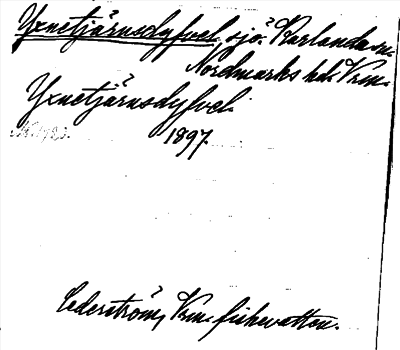 Yxnetjärnsdyfvel sjö. Karlanda sn.
Nordmarks hd. Vrm.
Yxnetjärnsdyfvel.
1897.
Cederström, Vrm. fiskevatten.